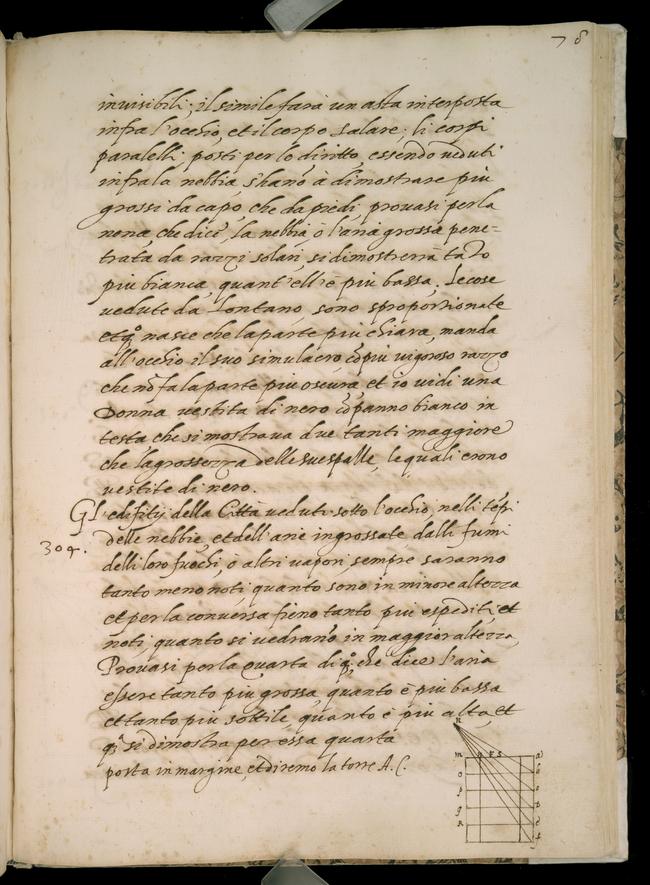 78
inuisibili; il simile farà un asta interposta
infra l'occhio, et il corpo solare; li corpi
paralelli posti per lo diritto, essendo ueduti
infra la nebbia, s'hanò à dimostrare più
grossi da capo, che da piedi, prouasi per la
nona che dice, la nebbia, ò l'aria grossa pene-
trata da razzi solari, si dimostrerrà tāto
più bianca, quant'ell'è più bassa. Le cose
uedute da lontano, sono sproportionate
et q̄ nasce che la parte più chiara, manda
all'occhio il suo simulacro cō più uigoroso razzo
che nō fa la parte più oscura, et io uidi una
Donna uestita di nero cō panno bianco in
testa che si mostraua due tanti maggiore
che la grossezza delle sue spalle, le quali erono
uestite di nero.
Gl'edifitij della Città ueduti sotto l'occhio, nelli tēpi
304.
delle nebbie, et dell'arie ingrossate dalli fumi
delli loro fuochi, ò altri uapori, sempre saranno
tanto meno noti, quanto sono in minore altezza
et per la conuersa fieno tanto più espediti, et
noti, quanto si uedranò in maggior altezza,
Prouasi per la quarta di q̄º, che dice l'aria
essere tanto più grossa, quanto è più bassa
et tanto più sottile, quanto è più alta, et
q̄º si dimostra per essa quarta
posta in margine, et diremo la torre A.C.
n
m
a
o
p
q